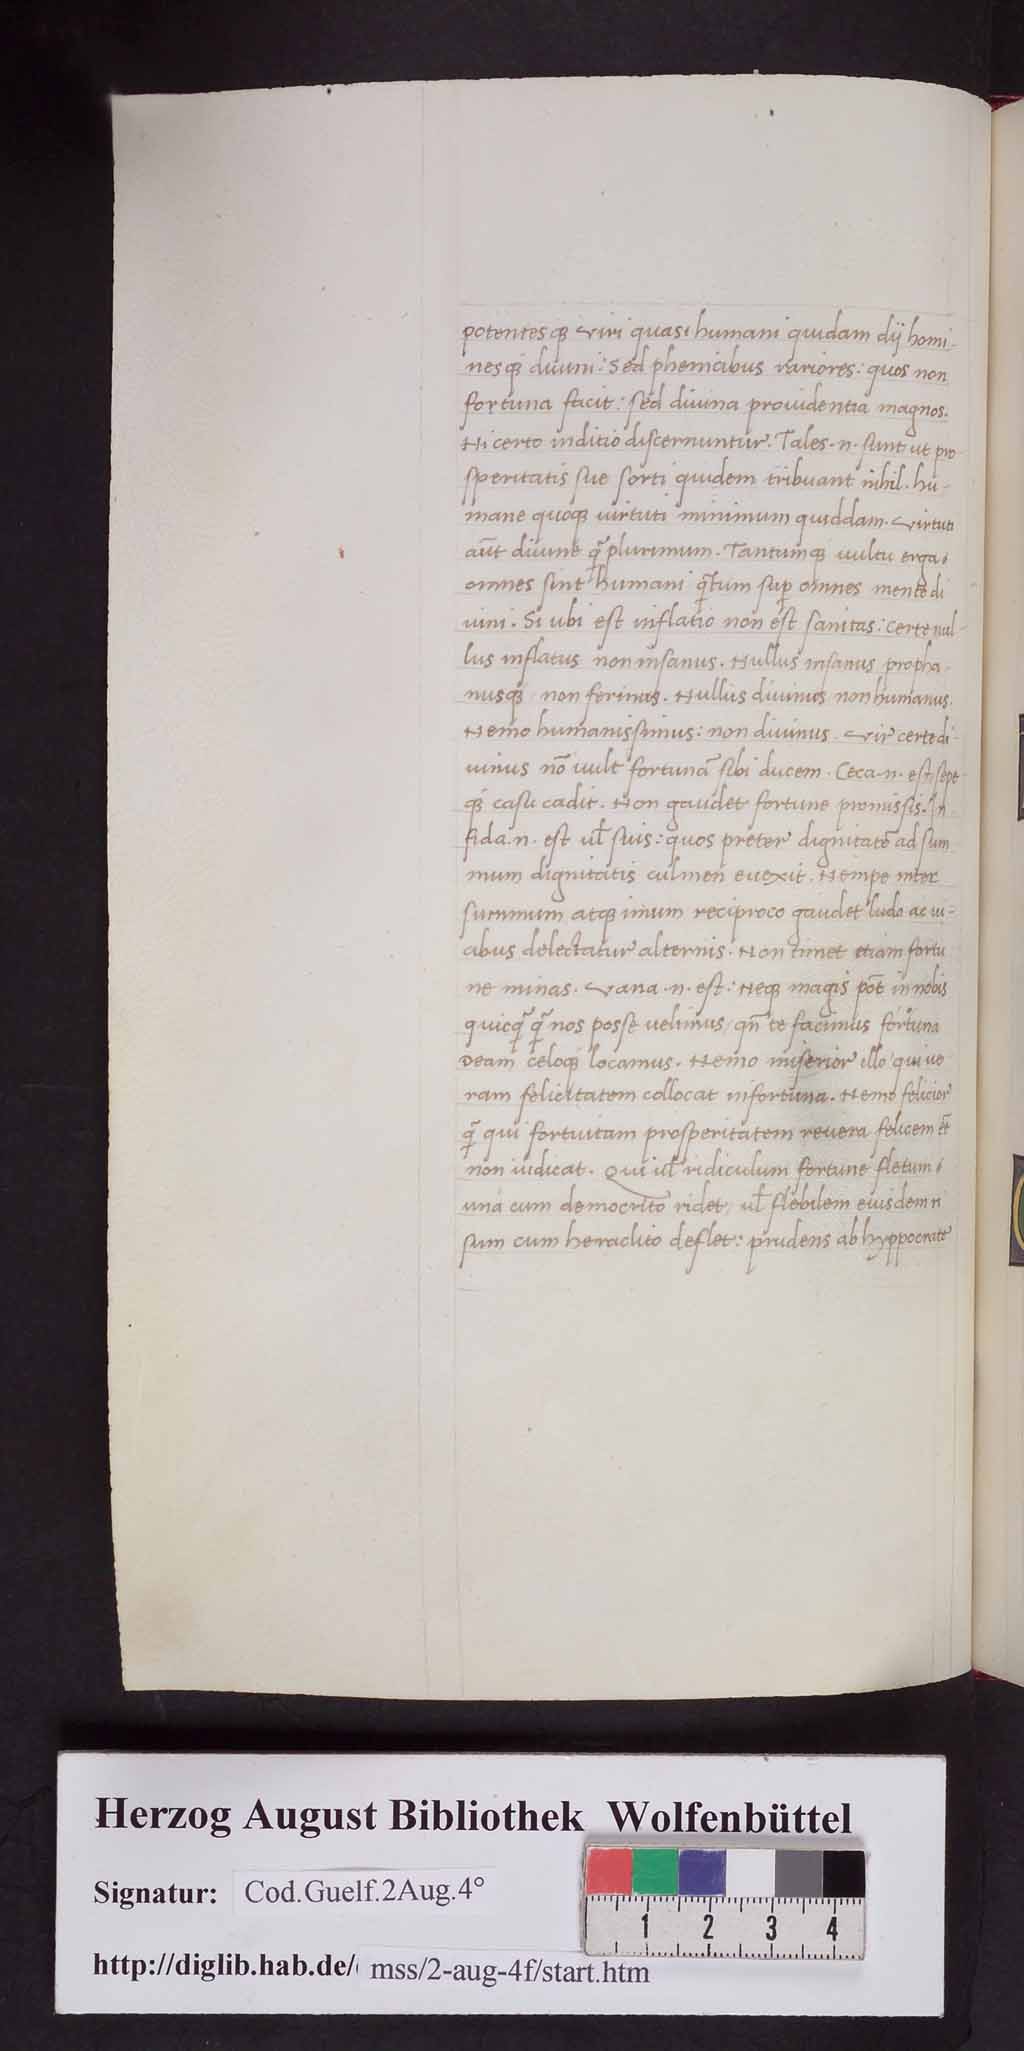 potentesqȝ viri quasi humani quidam dij homi-
nesqȝ diuini: Sed phenicibus rariores: quos non
fortuna facit: sed diuina prouidentia magnos.
Hi certo inditio discernuntur. Tales .n. sunt ut pro
speritatis sue sorti quidem tribuant nihil. hu-
mane quoqȝ uirtuti minimum quiddam. virtuti
aūt diuine q̄ plurimum. Tantumqȝ uultu erga
omnes sint humani q̄tum suꝑ omnes mente di
uini. Si ubi est inflatio non est sanitas: certe nul-
lus inflatus non insanus. Nullus insanus propha-
nusqȝ non ferinus. Nullus diuinus non humanus.
Nemo humanissimus: non diuinus. Vir certe di-
uinus nō uult fortunā sibi ducem. Ceca .n. est sepe-
qȝ casu cadit. Non gaudet fortune promissis. In
fida .n. est ul̄ suis: quos preter dignitatē ad sum
mum dignitatis culmen euexit. Nempe inter
summum atqȝ imum reciproco gaudet ludo ac ui-
cibus delectatur alternis. Non timet etiam fortu
ne minas. Vana .n. est: Neqȝ magis pōt in nobis
quicq̄ q̄ nos posse uelimus, qn̄ te facimus fortuna
Deam celoqȝ locamus. Nemo miserior illo qui ue
ram felicitatem collocat in fortuna. Nemo felicior
q̄ qui fortuitam prosperitatem reuera felicem eē
non iudicat. Qui ul̄ ridiculum fortune fletum
una cum democrito ridet, ul̄ flebilem eiusdem ri
sum cum heraclito deflet: prudens ab hyppocrate
Herzog August Bibliothek Wolfenbüttel
Signatur: Cod.Guelf.2Aug.4°
http://diglib.hab.de/ mss/2-aug-4f/start.htm
1 2 3 4